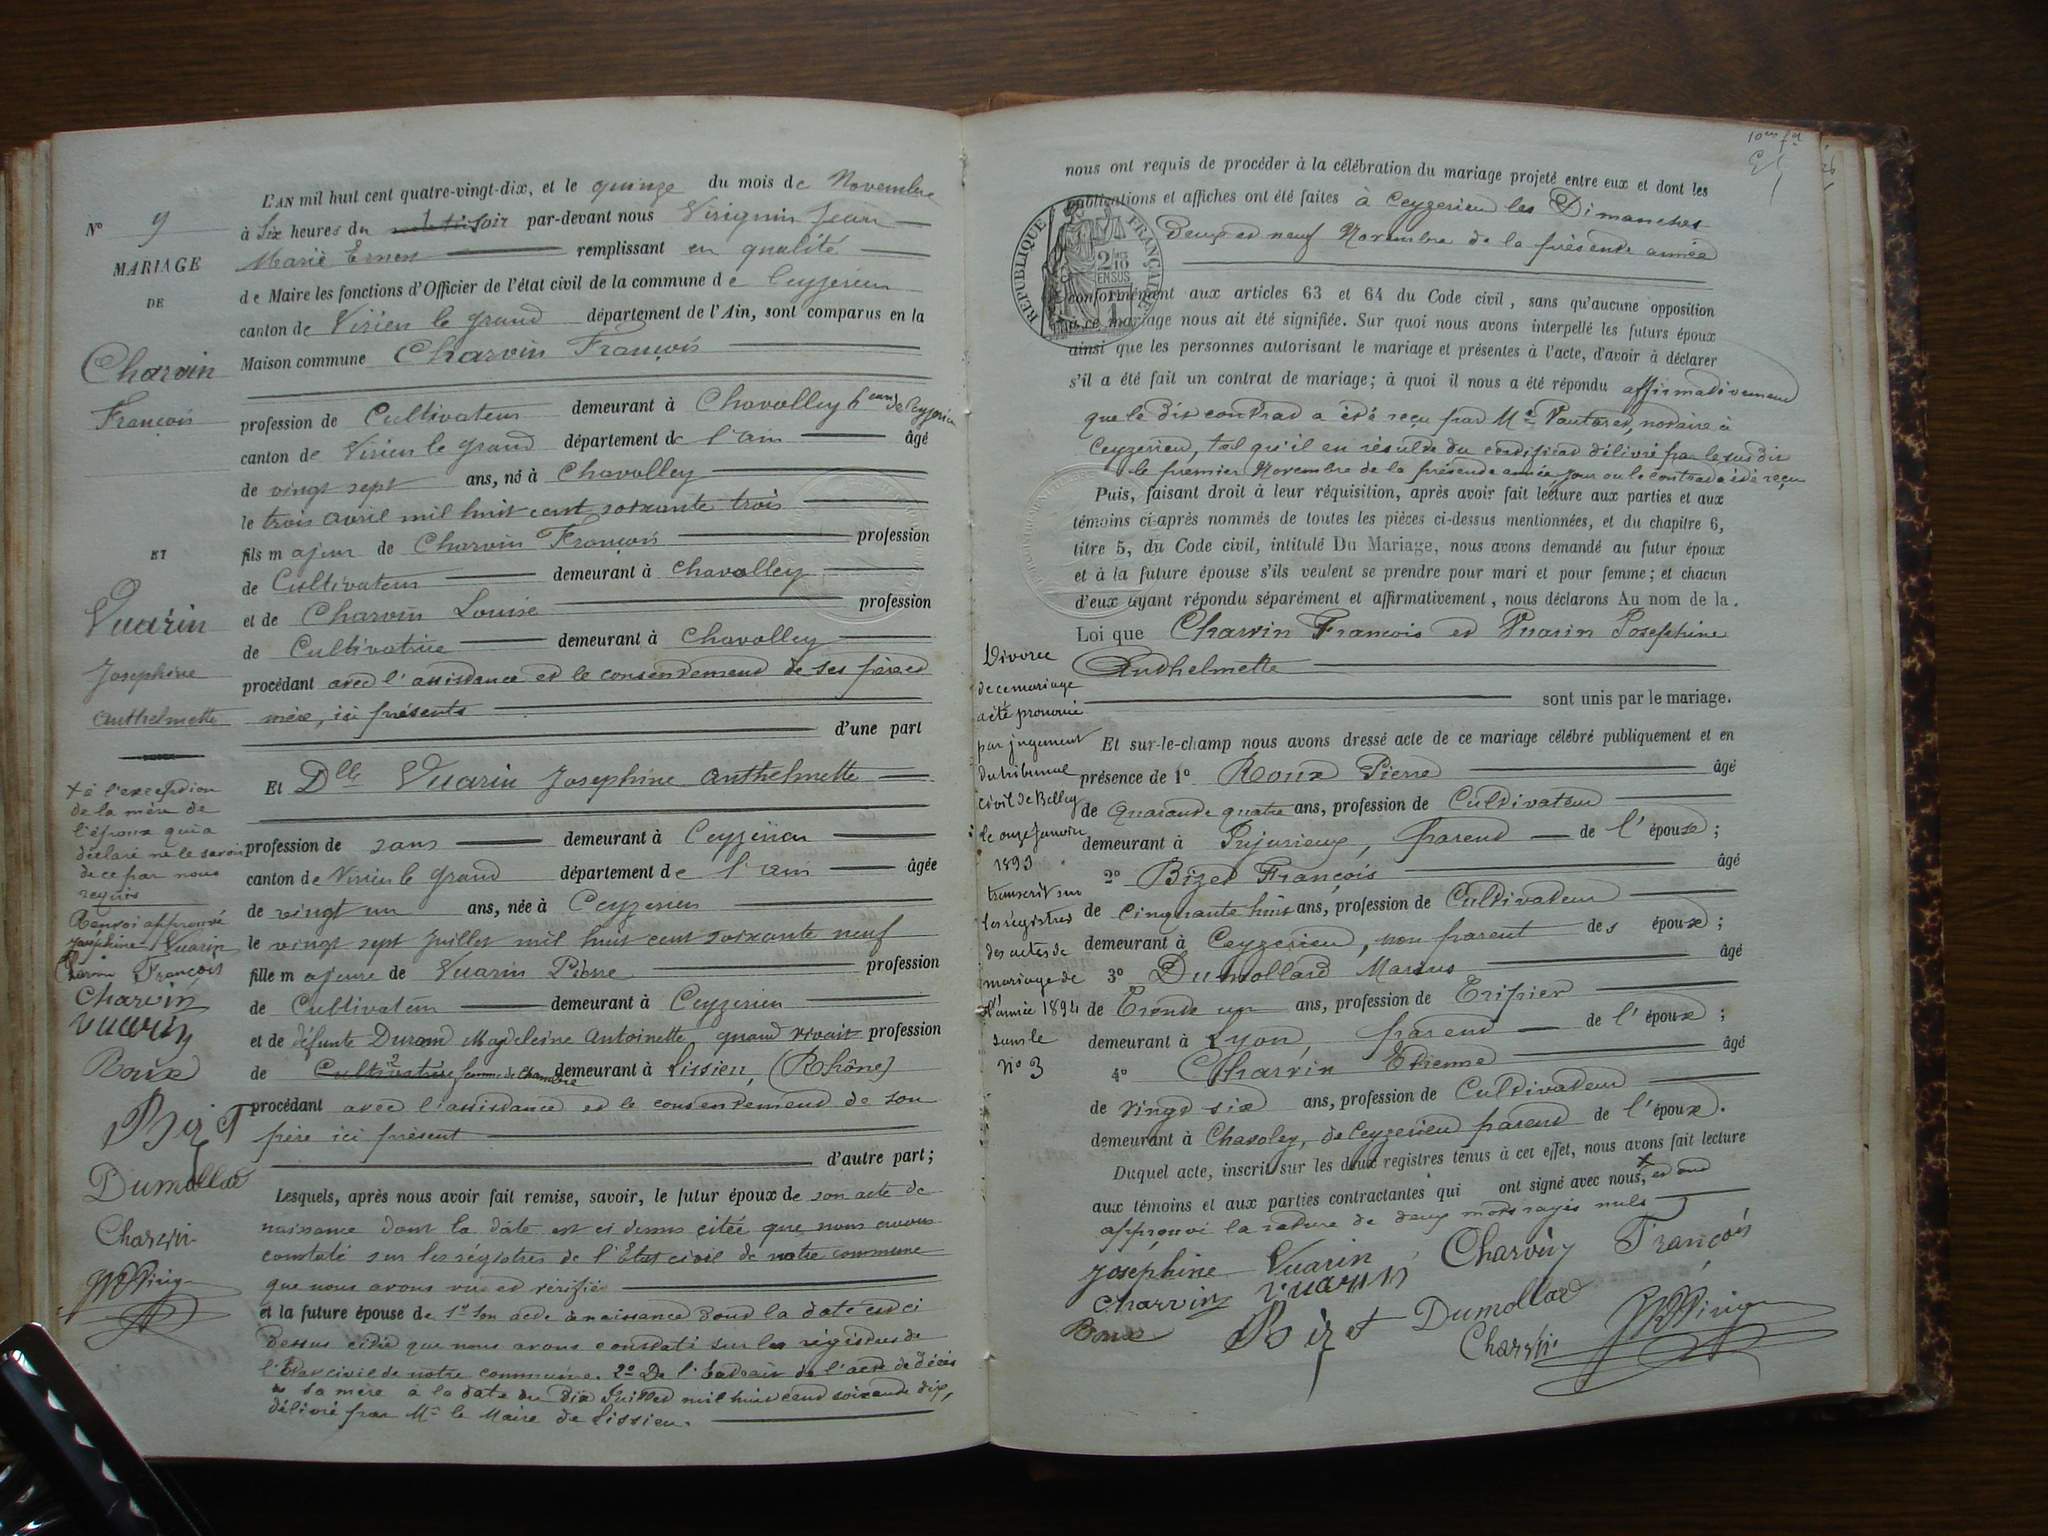 L'AN mil huit cent quatre-vingt-dix, et le quinze du mois de Novembre
N° 9
à Six heures du soir par-devant nous Virignin Jean
MARIAGE
Marie Ernest remplissant en qualité
DE
de Maire les fonctions d'Officier de l'état civil de la commune de Ceyzerieu
canton de Virieu le grand département de l'Ain, sont comparus en la
Charvin
Maison commune Charvin François
François
profession de Cultivateur demeurant à Chavolley Cne de Ceyzerieu
canton de Virieu le grand département de l'ain âgé
de vingt sept ans, né à Chavolley
le trois avril mil huit cent soixante trois
ET
fils majeur de Charvin François profession
de Cultivateur demeurant à Chavolley
Vuarin
et de Charvin Louise profession
de Cultivatrice demeurant à Chavolley
Josephine
procédant avec l'assistance et le consentement de ses père et
anthelmette
mère, ici présents
d'une part
Et Dlle Vuarin Josephine anthelmette
profession de sans demeurant à Ceyzerieu
canton de Virieu le grand département de l'ain âgée
de vingt un ans, née à Ceyzerieu
le vingt sept Juillet mil huit cent soixante neuf
fille majeure de Vuarin Pierre profession
de Cultivateur demeurant à Ceyzerieu
et de défunte Durand Magdeleine Antoinette quand vivait profession
de Cultivatrice femme de chambre demeurant à Lissieu, (Rhône)
procédant avec l'assistance et le consentement de son
père ici présent
d'autre part;
Lesquels, après nous avoir fait remise, savoir, le futur époux de son acte de
naissance dont la date est ci dessus citée que nous avons
constaté sur les régistres de l'Etat civil de notre commune
que nous avons vu et vérifié
et la future épouse de 1° son acte de naissance dont la date est ci
dessus citée que nous avons constaté sur les régistres de
l'Etat civil de notre commune. 2° De l'Extrait de l'acte de décès
de sa mère à la date du dix Juillet mil huit cent soixante dix,
délivré par Mr le Maire de Lissieu.
+ à l'exception
de la mère de
l'époux qui a
déclaré ne le savoir
de ce par nous
requis
Renvoi approuvé
Josephine Vuarin
Charvin François
Charvin
Vuarin
Roux
Bizet
Dumollard
Charvin
nous ont requis de procéder à la célébration du mariage projeté entre eux et dont les
publications et affiches ont été faites à Ceyzerieu les Dimanches
deux et neuf Novembre de la présente année
RÉPUBLIQUE FRANÇAISE
2 10
EN SUS
conformément aux articles 63 et 64 du Code civil, sans qu'aucune opposition
à ce mariage nous ait été signifiée. Sur quoi nous avons interpellé les futurs époux
ainsi que les personnes autorisant le mariage et présentes à l'acte, d'avoir à déclarer
s'il a été fait un contrat de mariage; à quoi il nous a été répondu affirmativement
que le dit contrat a été reçu par Me Vautaret, notaire à
Ceyzerieu, tel qu'il en résulte du certificat délivré par le sus dit
le premier Novembre de la présente année, jour ou le contrat a été reçu
Puis, faisant droit à leur réquisition, après avoir fait lecture aux parties et aux
témoins ci-après nommés de toutes les pièces ci-dessus mentionnées, et du chapitre 6,
titre 5, du Code civil, intitulé Du Mariage, nous avons demandé au futur époux
et à la future épouse s'ils veulent se prendre pour mari et pour femme; et chacun
d'eux ayant répondu séparément et affirmativement, nous déclarons Au nom de la
Loi que Charvin François et Vuarin Josephine
Anthelmette
sont unis par le mariage.
Et sur-le-champ nous avons dressé acte de ce mariage célébré publiquement et en
présence de 1° Roux Pierre âgé
de Quarante quatre ans, profession de Cultivateur
demeurant à Pujurieux, parent de l'épouse;
2° Bizet François âgé
de Cinquante huit ans, profession de Cultivateur
demeurant à Ceyzerieu, non parent des époux;
3° Dumollard Marius âgé
de Trente un ans, profession de Tripier
demeurant à Lyon, parent de l'épouse;
4° Charvin Etienne âgé
de vingt six ans, profession de Cultivateur
demeurant à Chavoley, de Ceyzerieu parent de l'époux.
Duquel acte, inscrit sur les deux registres tenus à cet effet, nous avons fait lecture
aux témoins et aux parties contractantes qui ont signé avec nous, + et ont
approuvé la rature de deux mots rayés nuls
Divorce
de ce mariage
a été prononcé
par jugement
du tribunal
civil de Belley
le onze Janvier
1893
transcrit sur
les régistres
des actes de
mariage de
l'année 1894
sous le
n° 3
Josephine Vuarin Charvin François
Charvin Vuarin
Roux Bizet Dumollard
Charvin